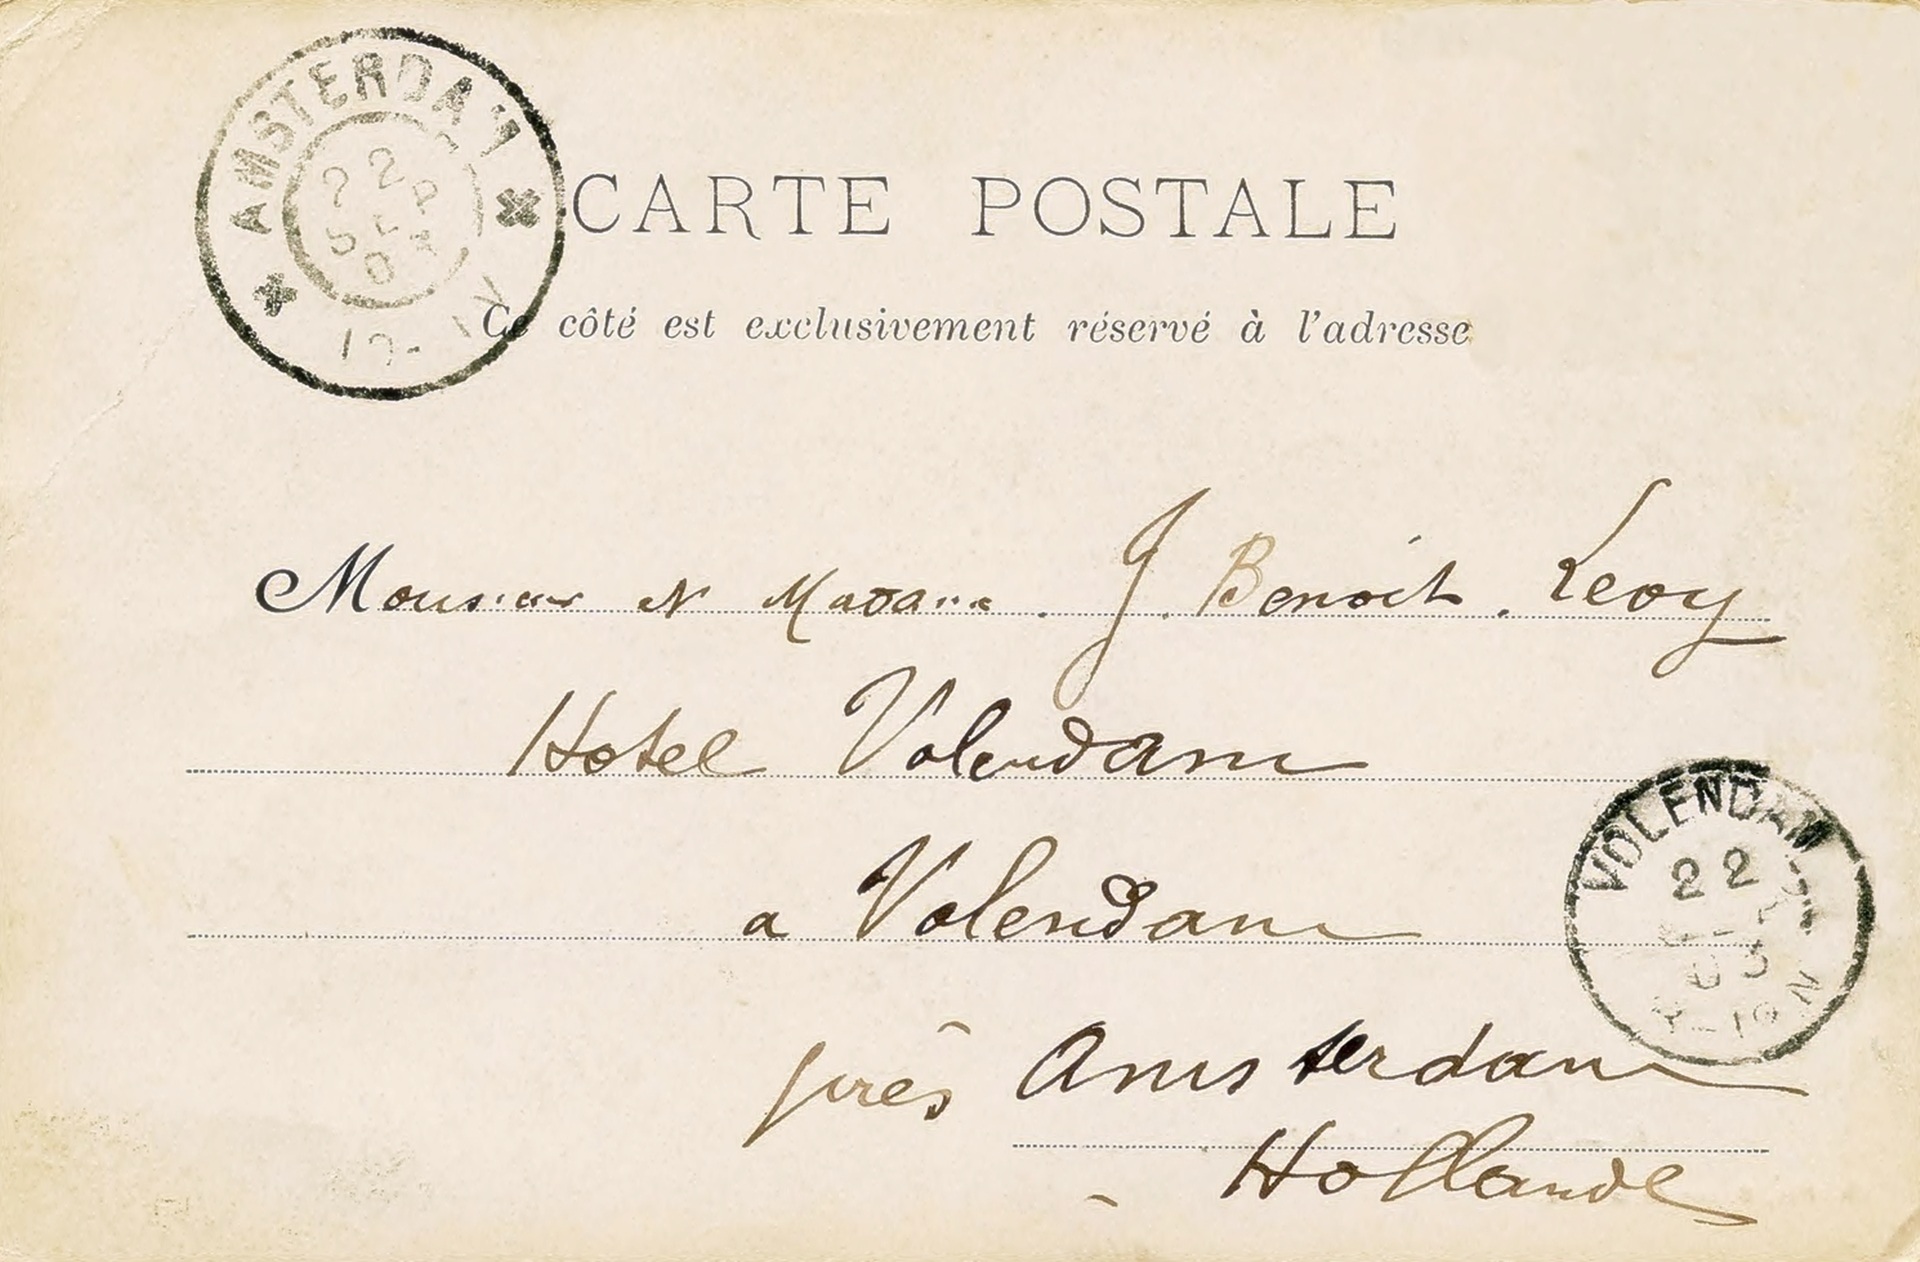 AMSTERDAM
22
SEP
03
CARTE POSTALE
Ce côté est exclusivement réservé à l'adresse
Monsieur et Madame J. Benoit. Levy
Hotel Volendam
VOLENDAM
22
03
a Volendam
près Amsterdam
Hollande